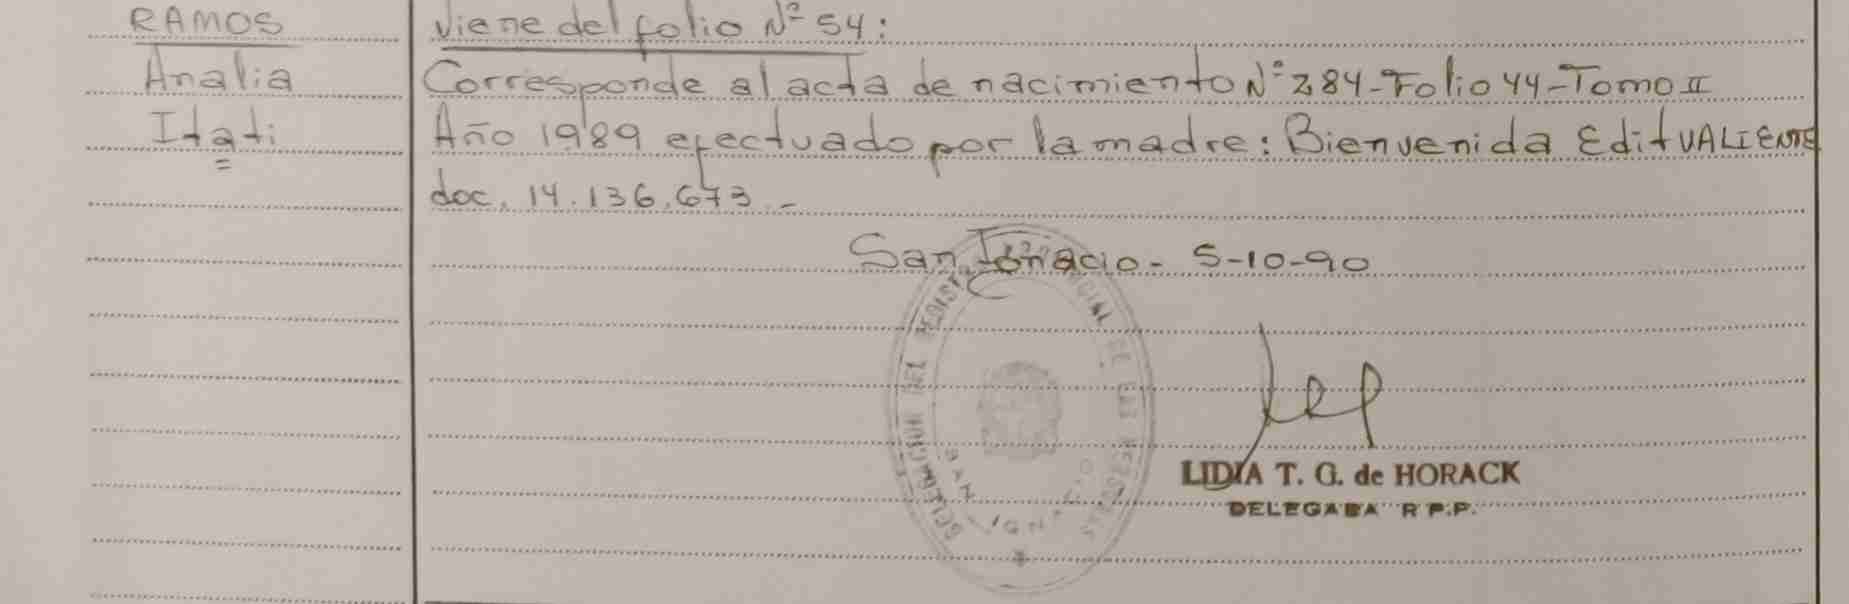 RAMOS
Analia
Itati
Viene del folio Nº 54:
Corresponde al acta de nacimiento Nº 284-Folio 44-Tomo II
Año 1989 efectuado por la madre: Bienvenida Edit VALIENTE
doc. 14.136.673.-
San Ignacio- 5-10-90
DELEGACION DEL REGISTRO PROVINCIAL DE LAS PERSONAS
SAN IGNACIO
LIDIA T. G. de HORACK
DELEGADA R P.P.